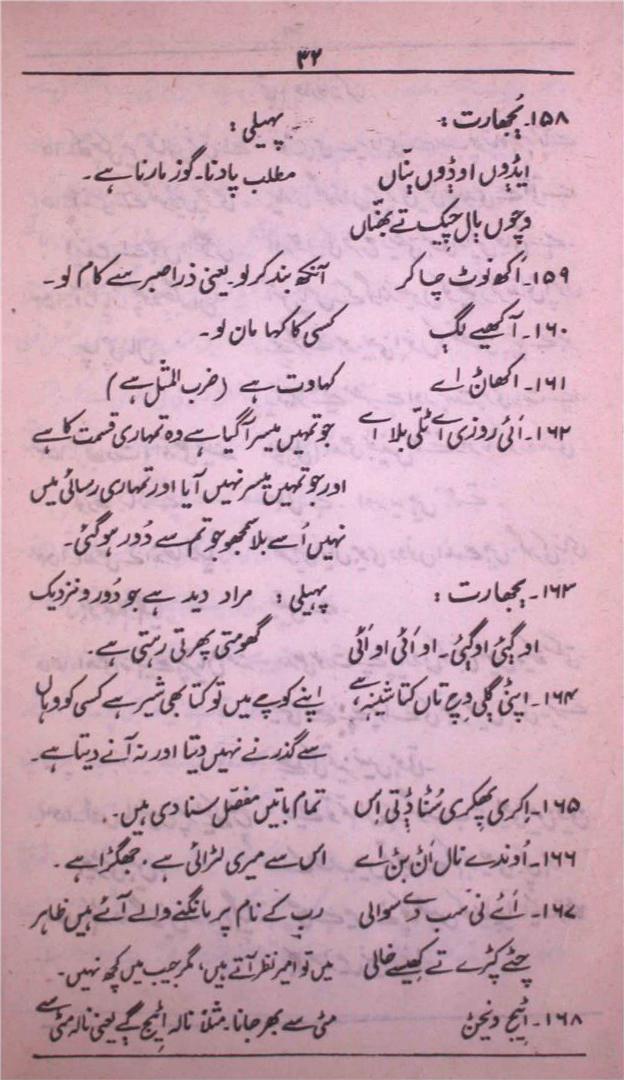 ۳۲
۱۵۸۔ بُجھارت : پہیلی :
ایڈوں اوڈوں بِناں مطلب پادنا۔ گوز مارنا ہے۔
وچوں بال چیک تے بھنّاں
۱۵۹۔ اَکھ نوٹ چا کر آنکھ بند کر لو۔ یعنی ذرا صبر سے کام لو۔
۱۶۰۔ آکھیے لگ کسی کا کہا مان لو۔
۱۶۱۔ اکھاݨ اے کہاوت ہے (ضرب المثل ہے)
۱۶۲۔ اَئی روزی اے ٹلّی بلا اے جو تمہیں میسر آ گیا ہے وہ تمہاری قسمت کا ہے
اور جو تمہیں میسر نہیں آیا اور تمہاری رسائی میں
نہیں اُسے بلا سمجھو جو تم سے دُور ہو گئی۔
۱۶۳۔ بجھارت : پہیلی : مراد دید ہے جو دُور و نزدیک
او گیئی او گیئی۔ او آئی او آئی گھومتی پھرتی رہتی ہے۔
۱۶۴۔ اپݨی گلی وِچ تاں کتا شینہہ ہے اپنے کوچے میں تو کتا بھی شیر ہے کسی کو وہاں
سے گذرنے نہیں دیتا اور نہ آنے دیتا ہے۔
۱۶۵۔ اِکری پھکری سُݨا ڈِتی اس تمام باتیں مفصّل سنا دی ہیں۔
۱۶۶۔ اُوندے نال اَݨ بݨ اے اس سے میری لڑائی ہے، جھگڑا ہے۔
۱۶۷۔ اَئے نی رب دے سوالی رب کے نام پر مانگنے والے آئے ہیں ظاہر
چٹے کپڑے تے کھیسے خالی میں تو امیر نظر آتے ہیں، مگر جیب میں کچھ نہیں۔
۱۶۸۔ اٹیج ونجݨ مٹی سے بھر جانا۔ مثلاً نالہ اٹیج گے یعنی نالہ مٹی سے